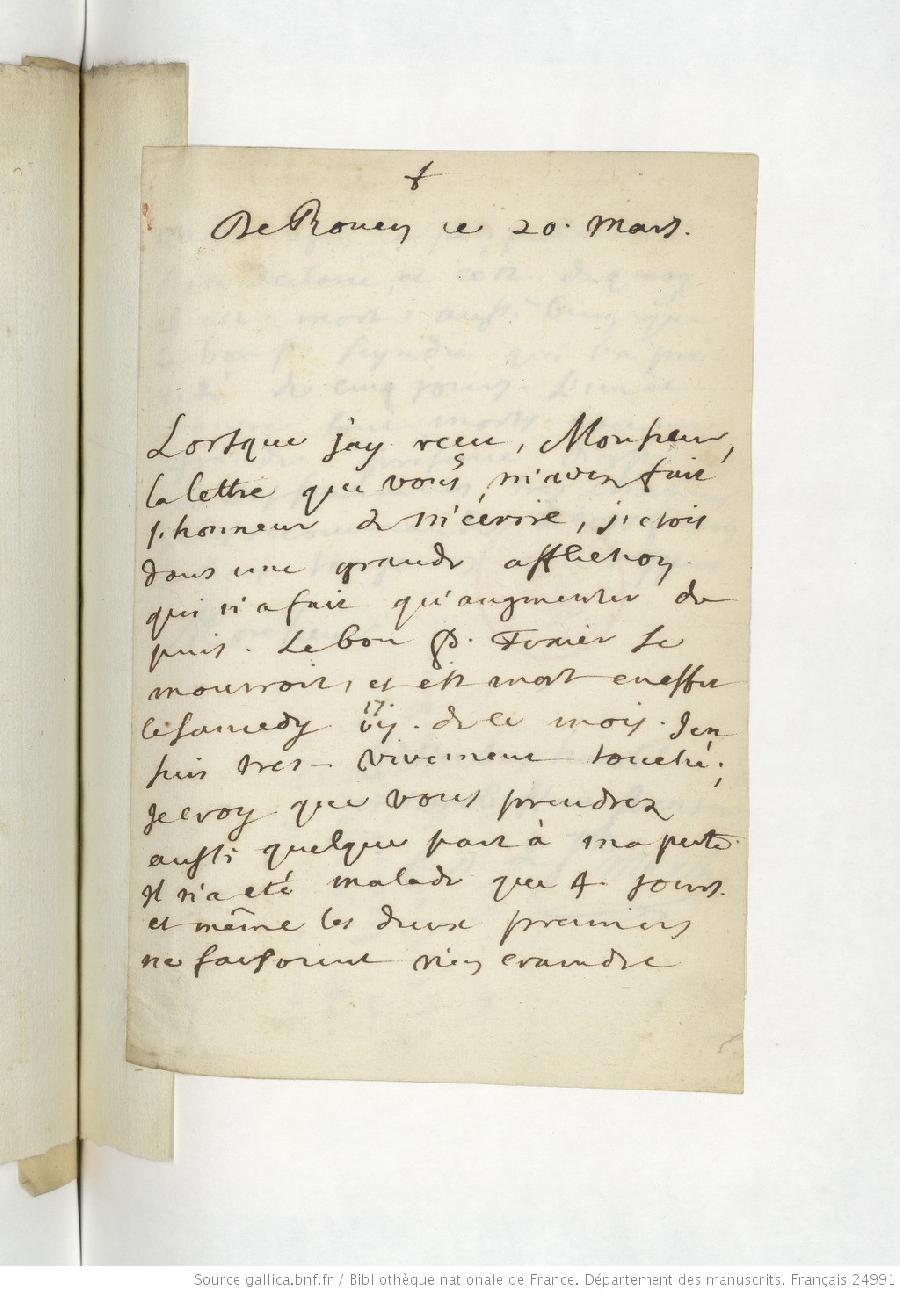 †
De Rouen ce 20. Mars.
Lorsque j'ay receu, Monsieur,
la lettre que vous m'avez fait
l'honneur de m'écrire, j'etois
dans une grande affliction
qui n'a fait qu'augmenter de
puis. Le bon P. se
mourroit, et est mort en effet
le samedy 17. de ce mois. J'en
suis tres-vivement touché;
Je croy que vous prendrez
aussi quelque part à ma perte.
Il n'a eté malade que 4. jours.
et même les deux premiers
ne faisoient rien craindre
Source gallica.bnf.fr / Bibliothèque nationale de France. Département des manuscrits. Français 24991